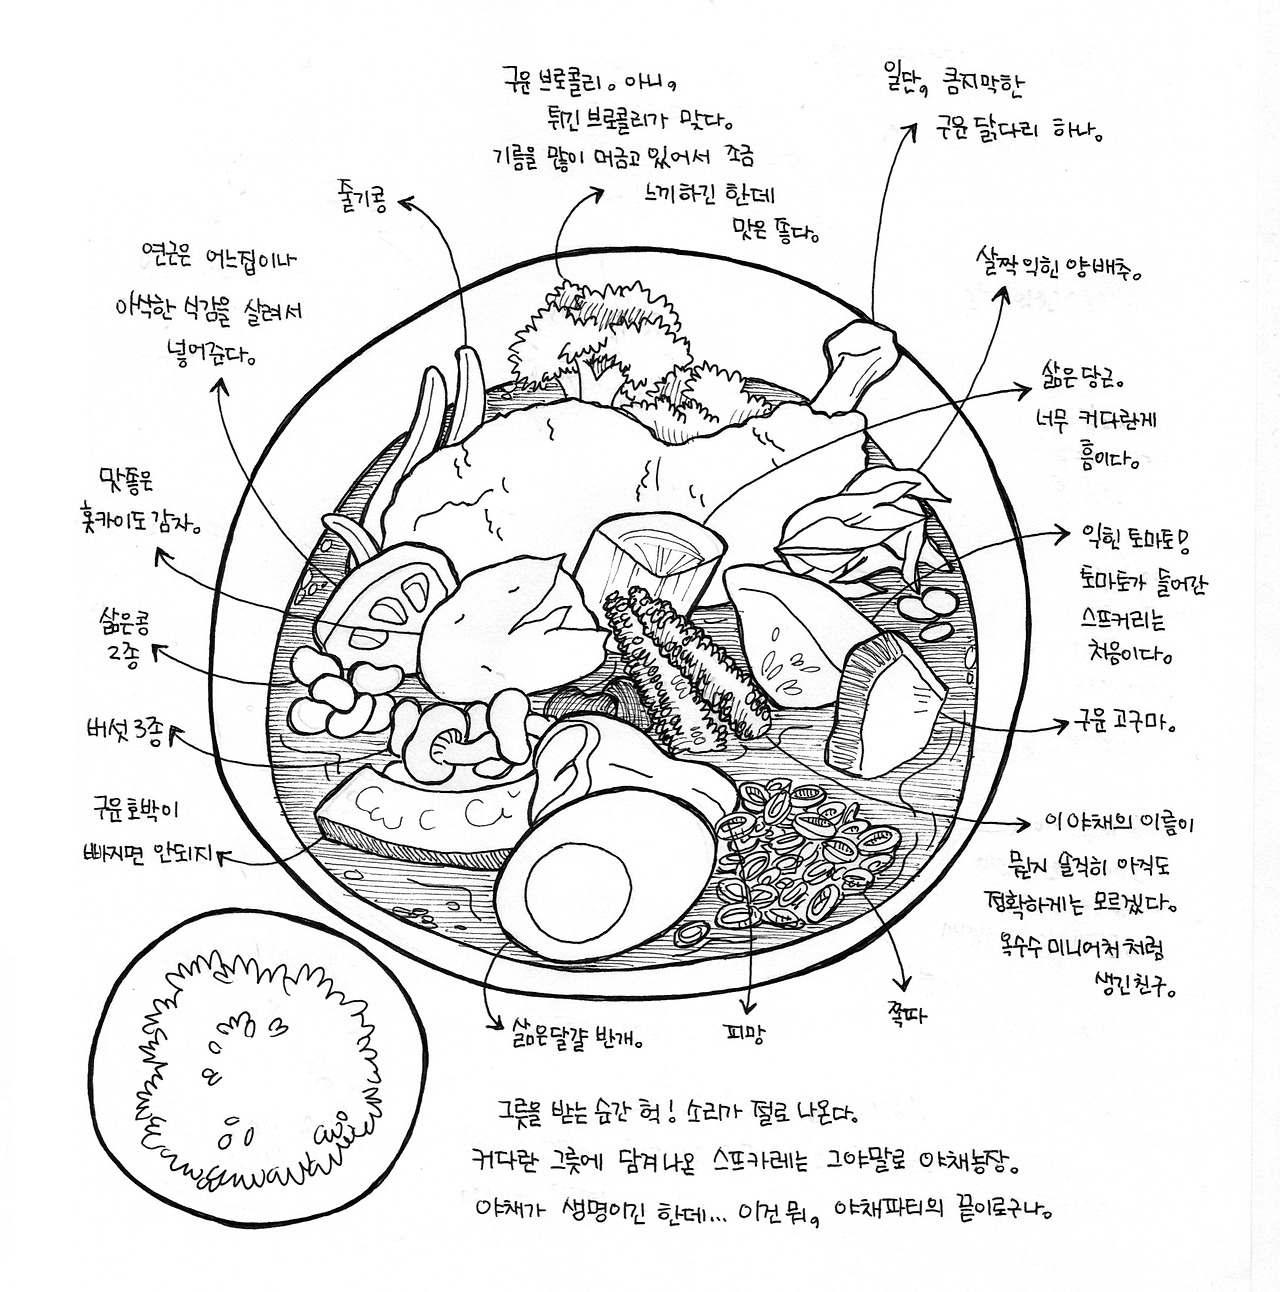 구운 브로콜리. 아니,
튀긴 브로콜리가 맞다.
기름을 많이 머금고 있어서 조금
느끼하긴 한데
맛은 좋다.
일단, 큼지막한
구운 닭다리 하나.
줄기콩
연근은 어느집이나
아삭한 식감을 살려서
넣어준다.
살짝 익힌 양배추.
삶은 당근.
너무 커다란게
흠이다.
맛좋은
홋카이도 감자.
익힌 토마토!
토마토가 들어간
스프커리는
처음이다.
삶은콩
2종
버섯 3종
구운 고구마.
구운호박이
빠지면 안되지
이 야채의 이름이
뭔지 솔직히 아직도
정확하게는 모르겠다.
옥수수 미니어처 처럼
생긴친구.
삶은달걀 반개.
피망
쪽파
그릇을 받는 순간 헉! 소리가 절로 나온다.
커다란 그릇에 담겨나온 스프카레는 그야말로 야채농장.
야채가 생명이긴 한데... 이건 뭐, 야채파티의 끝이로구나.